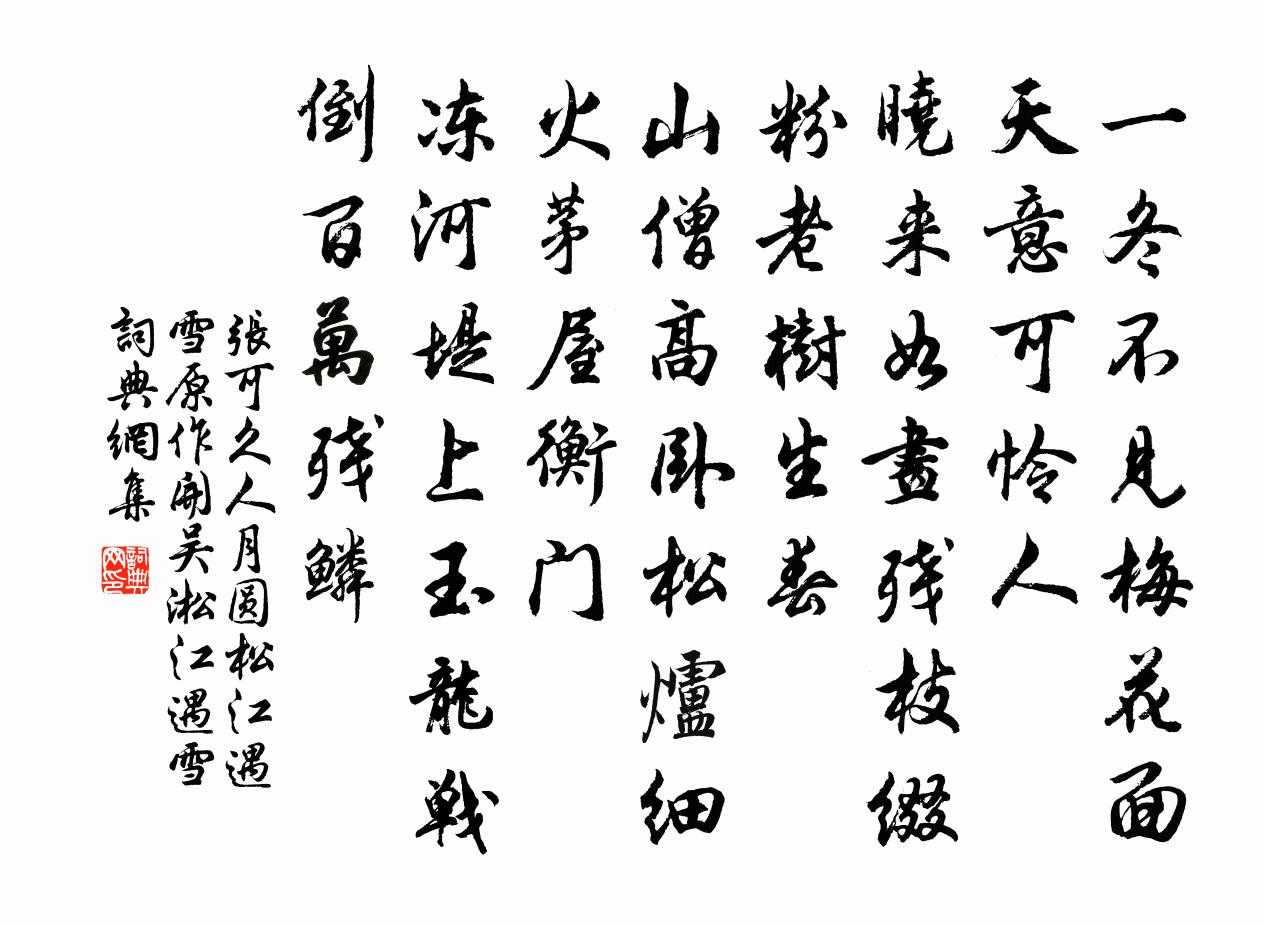 一冬不見梅花面
天意可怜人
曉来如畫残枝綴
粉老樹生春
山僧高卧松爐細
火茅屋衡门
冻河堤上玉龍戦
倒百萬残鱗
張可久人月圆松江遇
雪原作開吴淞江遇雪
詞典網集
詞典网印